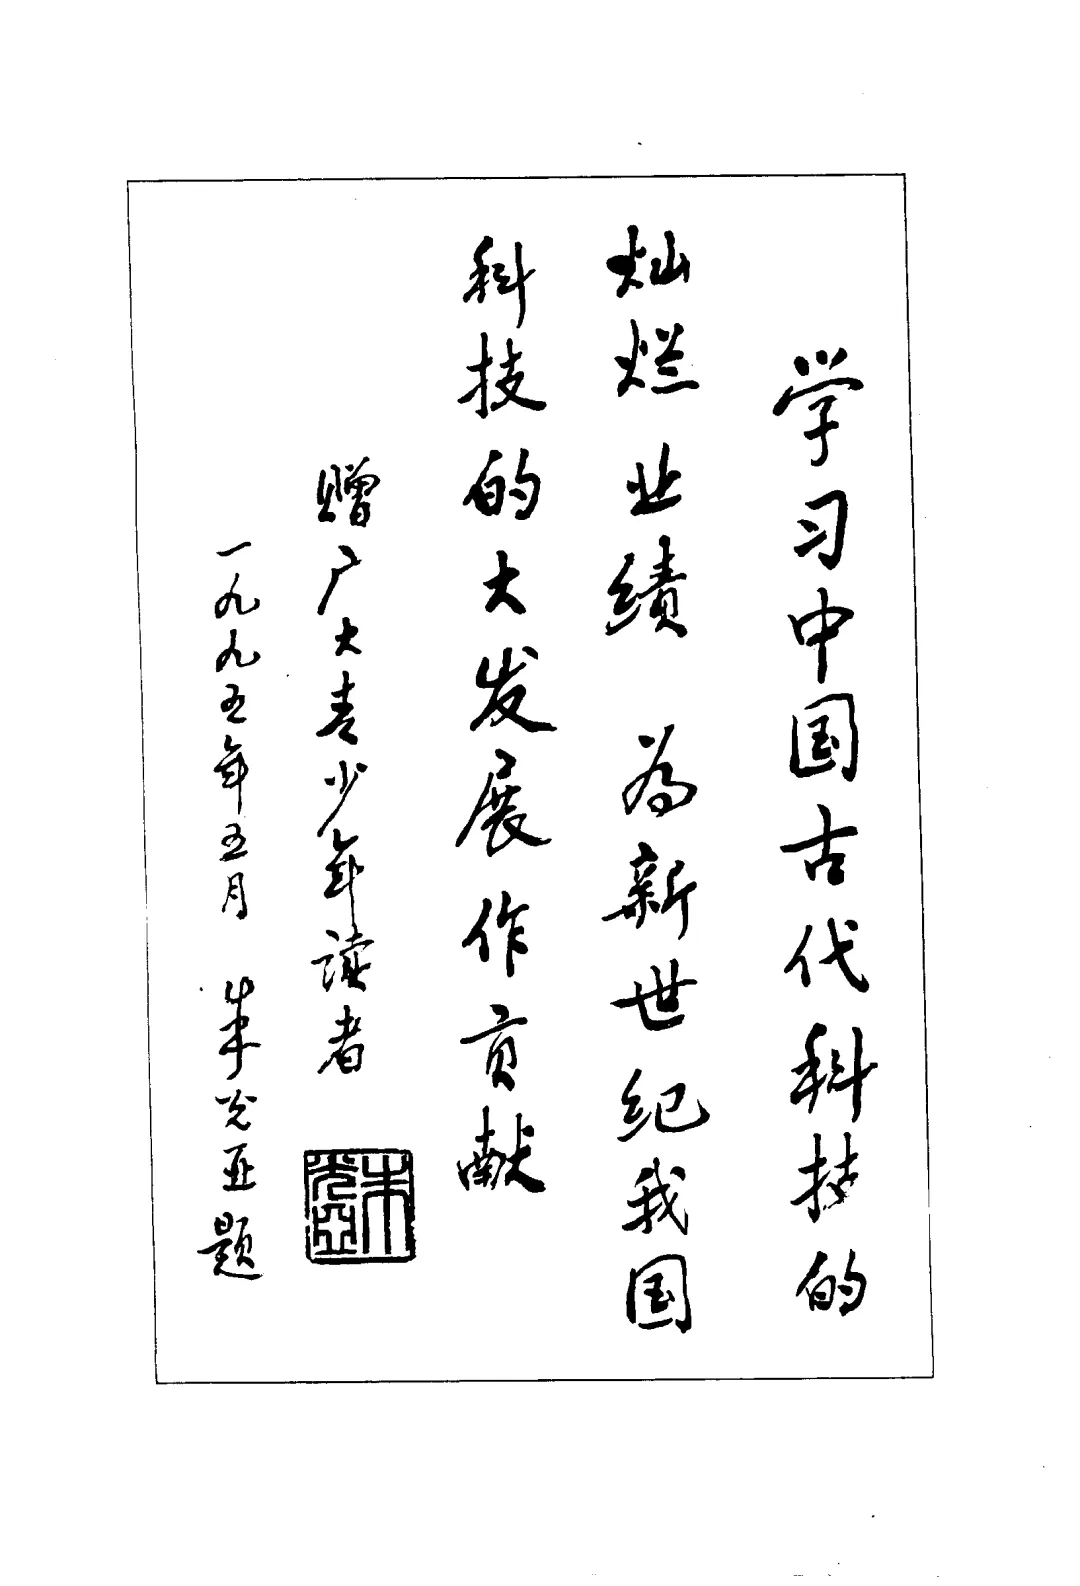 学习中国古代科技的
灿烂业绩 为新世纪我国
科技的大发展作贡献
赠广大青少年读者
一九九五年五月 朱光亚题
朱光亚